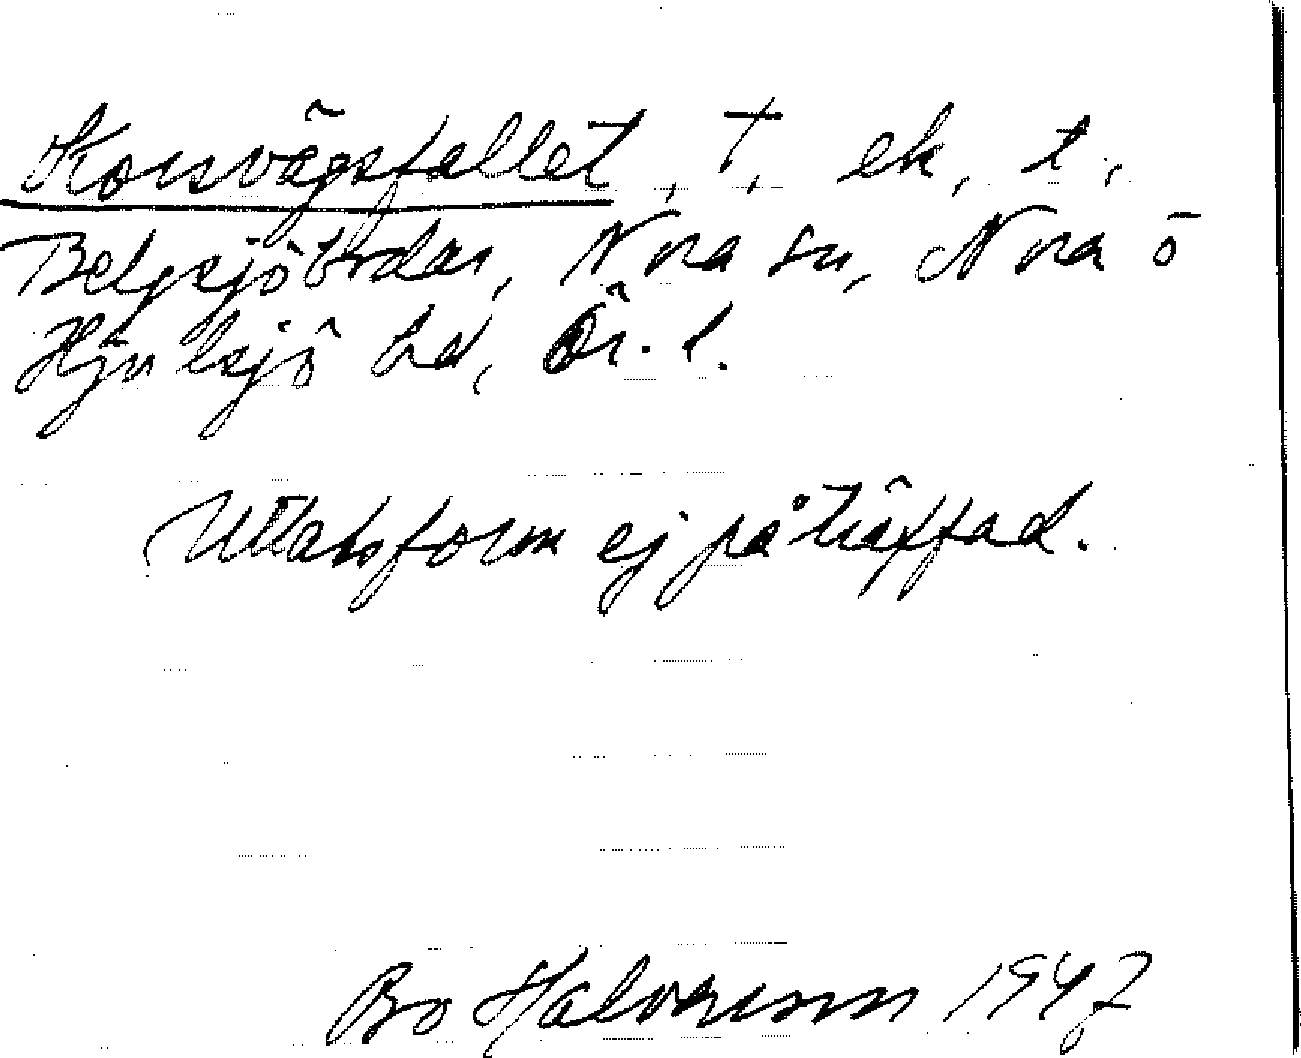 Korsvägsfallet, T, ek, t,
Bergsjöbrdar, Nora sn, Nora o
Hjulsjö bd, Ör. l.
Uttalsform ej påträffad.
Bo Halvarsson 1947